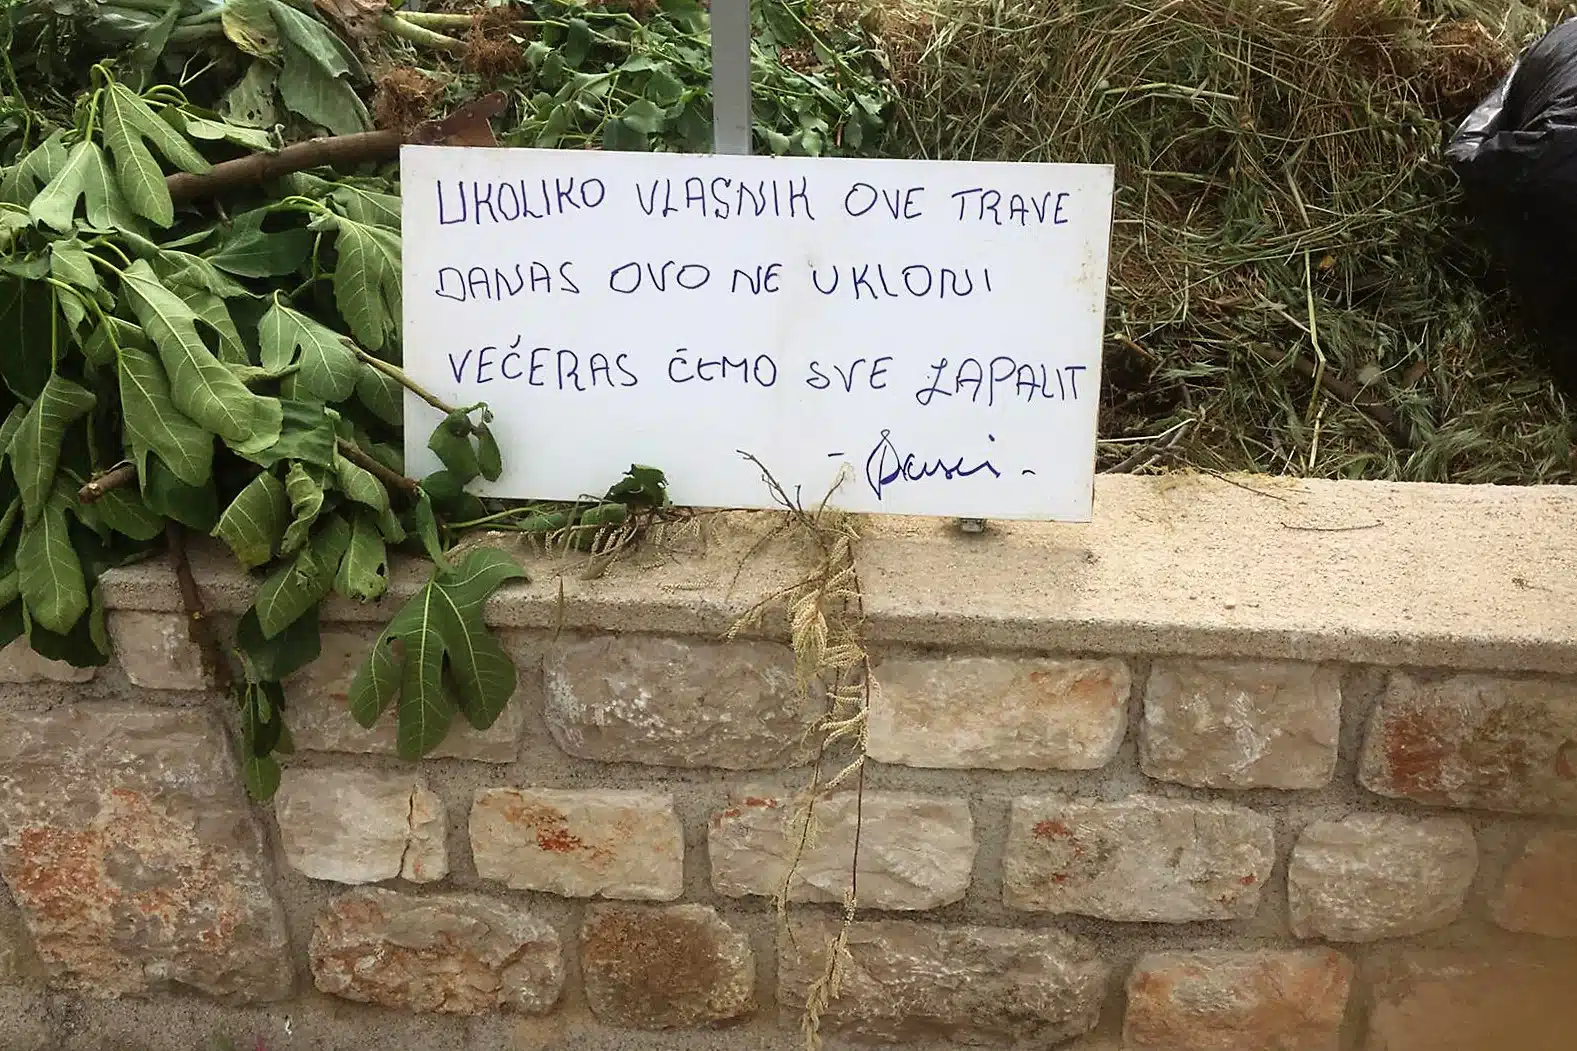 UKOLIKO VLASNIK OVE TRAVE
DANAS OVO NE UKLONI
VEČERAS ĆEMO SVE ZAPALIT